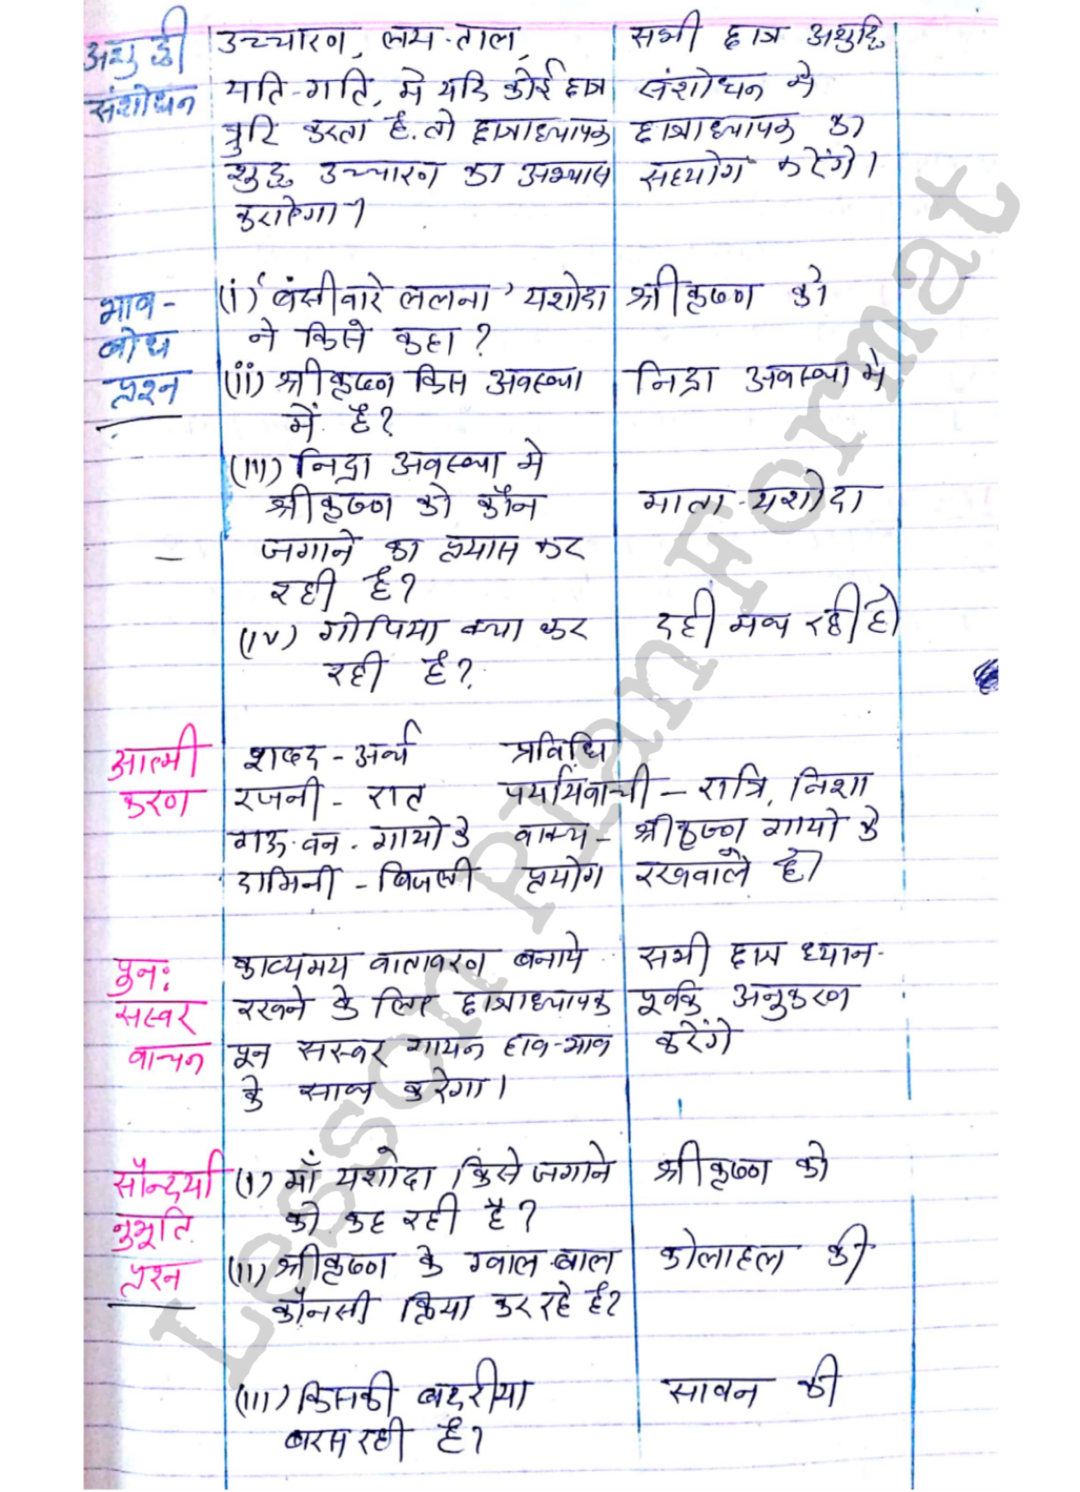 अशुद्धी उच्चारण, लय-ताल, सभी छात्र अशुद्धि
संशोधन यति-गति, मे यदि कोई छात्र संशोधन मे
त्रुटि करता है. तो छात्राध्यापक छात्राध्यापक का
शुद्ध उच्चारण का अभ्यास सहयोग करेंगे।
कराऐगा।
भाव- (i) 'बंसीवारे ललना' यशोदा श्रीकृष्ण को
बोध ने किसे कहा?
प्रश्न (ii) श्रीकृष्ण किस अवस्था निद्रा अवस्था मे
में है?
(iii) निद्रा अवस्था मे
श्रीकृष्ण को कौन माता-यशोदा
जगाने का प्रयास कर
रही है?
(iv) गोपिया क्या कर दही मथ रही है।
रही है?
आत्मी शब्द - अर्थ प्रविधि
करण रजनी - रात पर्यायवाची - रात्रि, निशा
गऊ-वन - गायो के वाक्य - श्रीकृष्ण गायो के
दामिनी - बिजली प्रयोग रखवाले है।
पुन: काव्यमय वातावरण बनाये सभी छात्र ध्यान-
सस्वर रखने के लिए छात्राध्यापक पूर्वक अनुकरण
वाचन पून सस्वर गायन हाव-भाव करेंगे
के साथ करेगा।
सौन्दर्या (i) माँ यशोदा किसे जगाने श्रीकृष्ण को
नुभूति को कह रही है?
प्रश्न (ii) श्रीकृष्ण के ग्वाल बाल कोलाहल की
कौनसी क्रिया कर रहे है?
(iii) किसकी बदरीया सावन की
बरस रही है?
Lesson Plan Format